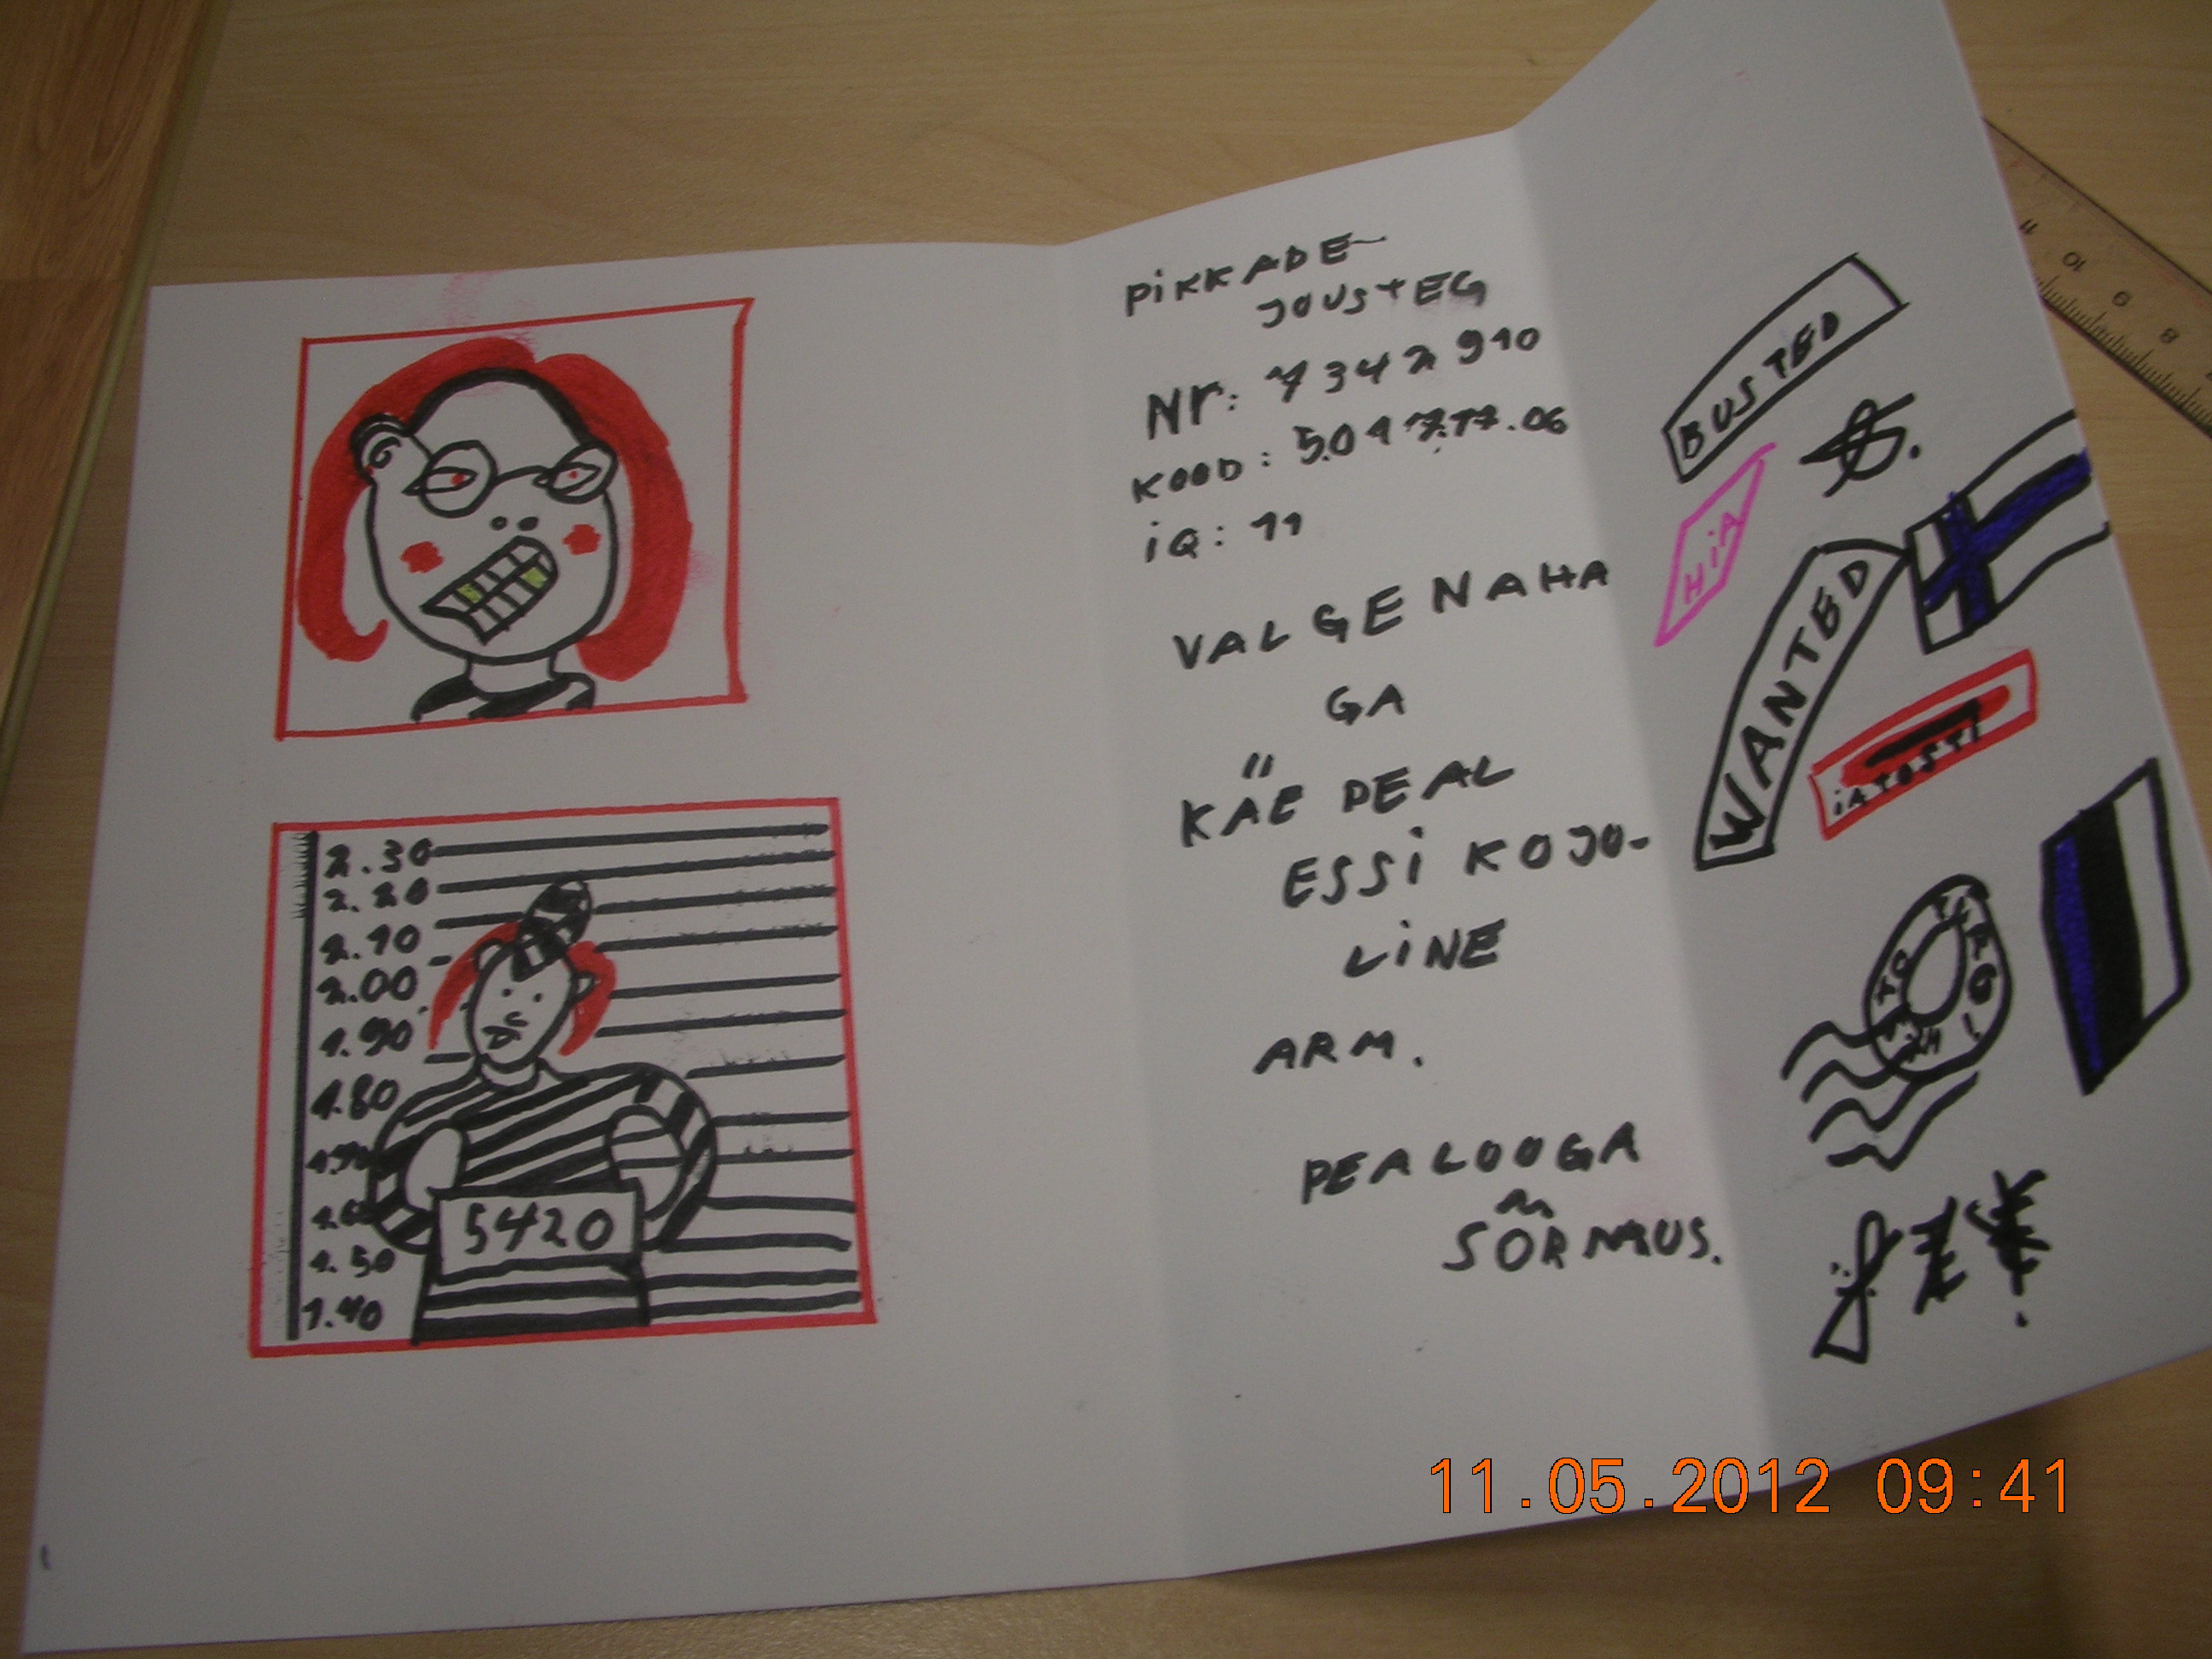 2.30
2.20
2.10
2.00
1.90
1.80
1.70
1.60
1.50
1.40
5420
PiKKADE-
JOUSTEG
Nr: 7342910
KOOD:
iQ: 11
VALGE NAHA
GA
KÄE PEAL
ESSi KOJO-
LiNE
ARM.
PEALOOGA
SÕRMUS.
BUSTED
HiA
WANTED
11
10
9
8
11.05.2012 09:41